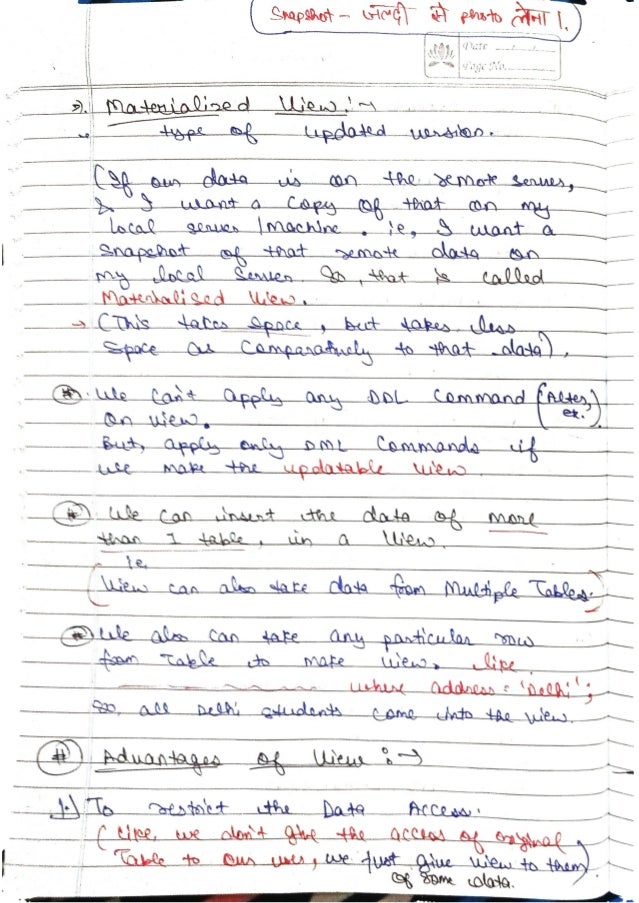 Snapshot - जल्दी से photo लेना ।
Date
Page No.
Materialized View :-
type of updated version.
(If our data is on the remote server,
& I want a copy of that on my
local server / machine. ie, I want a
snapshot of that remote data on
my local server. So, that is called
Materialised View.
→ (This takes space, but takes less
space as comparatively to that data).
We can't apply any DDL command (Alter, etc.)
on view.
But, apply only DML commands if
we make the updatable view
We can insert the data of more
than 1 table, in a View.
ie,
(View can also take data from Multiple Tables.)
We also can take any particular row
from Table to make view. like
where address = 'Delhi';
So, all Delhi students come into the view.
# Advantages of View :→
1.) To restrict the Data Access.
(like, we don't give the access of original
Table to our user, we just give view to them)
of some data.